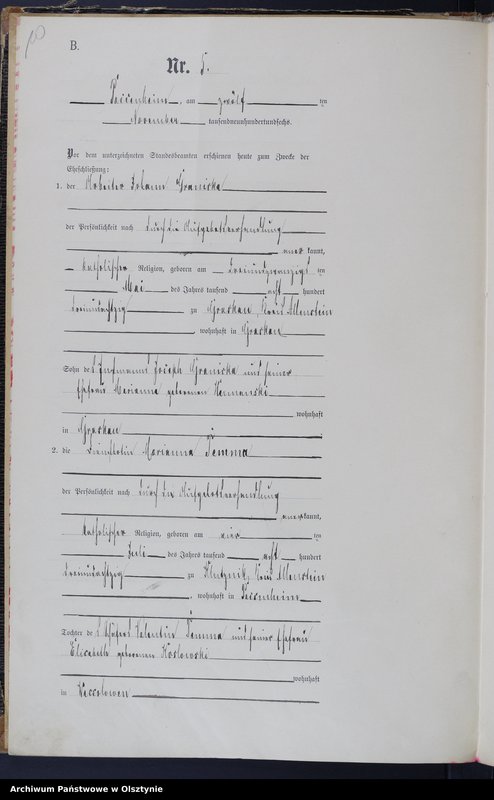 B.
Nr. 5.
Passenheim, am zwölf ten
November tausendneunhundertundsechs.
Vor dem unterzeichneten Standesbeamten erschienen heute zum Zwecke der
Eheschließung:
1. der Arbeiter Johann Graniska
der Persönlichkeit nach durch die Aufgebotsverhandlung
anerkannt,
katholischer Religion, geboren am dreiundzwanzigsten
Mai des Jahrs tausend acht hundert
dreiundachtzig zu Graskau, Kreis Allenstein
, wohnhaft in Graskau
Sohn des Joseph Graniska und seiner
Ehefrau Marianna geborenen
wohnhaft
in Graskau
2. die Marianna Temma
der Persönlichkeit nach durch die Aufgebotsverhandlung
anerkannt,
katholischer Religion, geboren am vier ten
Juli des Jahrs tausend acht hundert
dreiundachtzig zu Kreis Allenstein
, wohnhaft in Passenheim
Tochter des Valentin Temma und seiner Ehefrau
Elisabeth geborenen Koslowski
wohnhaft
in
Archiwum Państwowe w Olsztynie